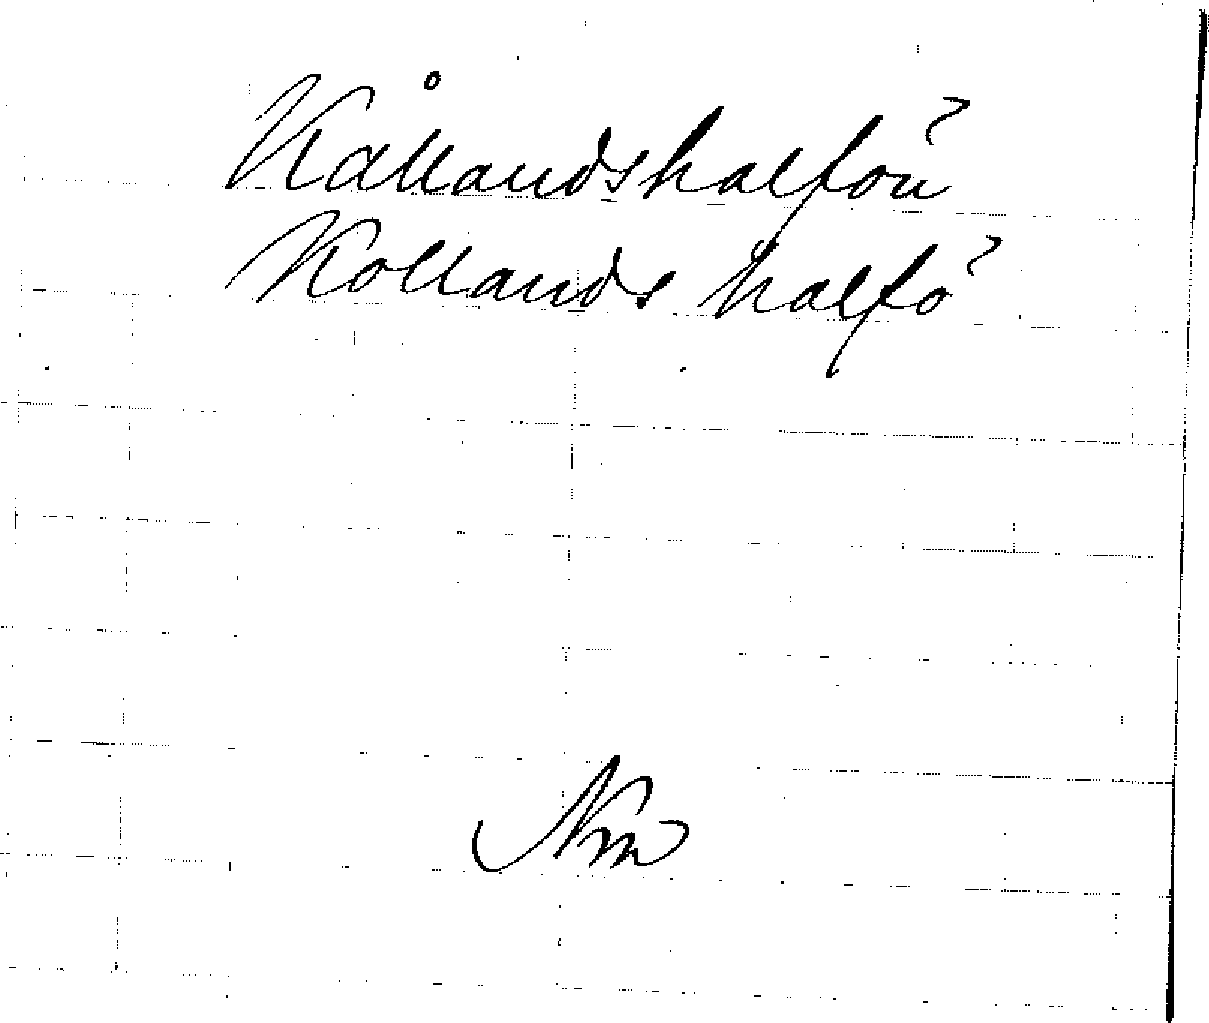 Kållandshalfön
Kollands halfö